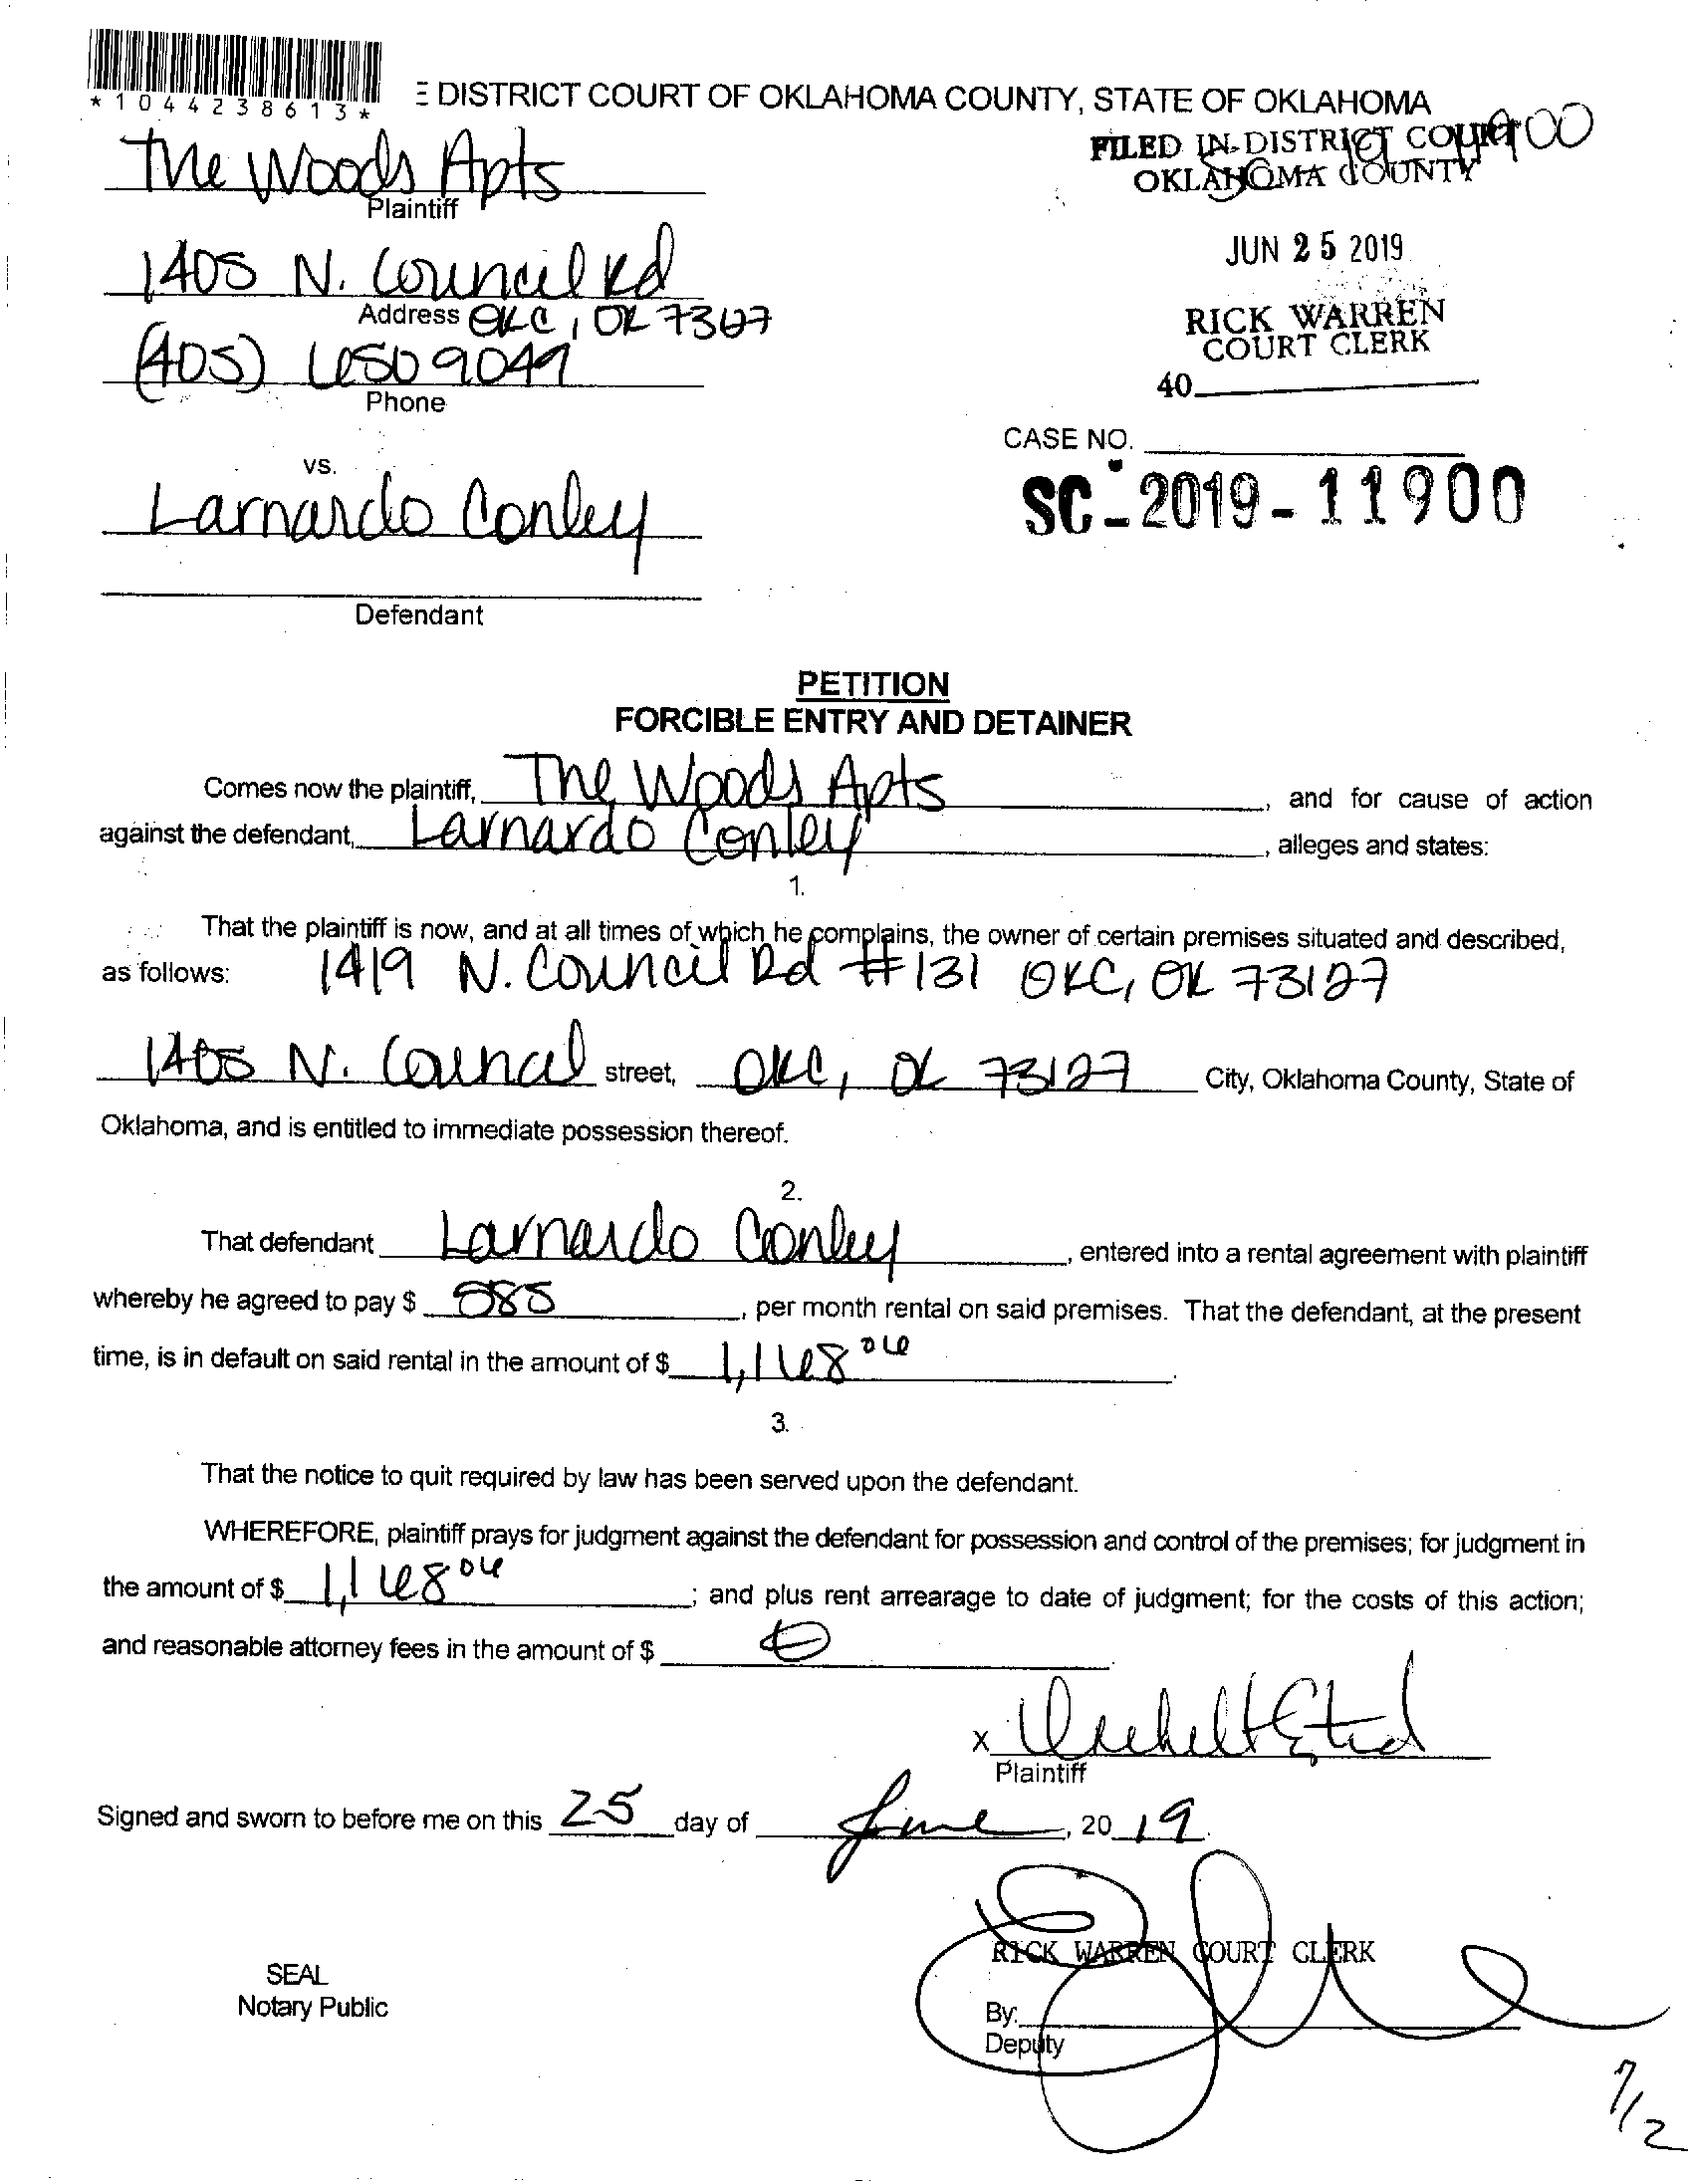 *1044238613*
E DISTRICT COURT OF OKLAHOMA COUNTY, STATE OF OKLAHOMA
The Woods Apts
Plaintiff
FILED IN DISTRICT COURT
OKLAHOMA COUNTY
JUN 25 2019
1405 N. Council Rd
Address OKC, OK
RICK WARREN
COURT CLERK
(405) 9049
Phone
40
CASE NO.
SC-2019-11900
vs.
Larnardo Conley
Defendant
PETITION
FORCIBLE ENTRY AND DETAINER
Comes now the plaintiff, The Woods Apts, and for cause of action
against the defendant, Larnardo Conley, alleges and states:
1.
That the plaintiff is now, and at all times of which he complains, the owner of certain premises situated and described,
as follows: 1419 N. Council Rd #131 OKC, OK 73127
1405 N. Council street, OKC, OK 73127 City, Oklahoma County, State of
Oklahoma, and is entitled to immediate possession thereof.
2.
That defendant Larnardo Conley, entered into a rental agreement with plaintiff
whereby he agreed to pay $ 585, per month rental on said premises. That the defendant, at the present
time, is in default on said rental in the amount of $ 1,168 06.
3.
That the notice to quit required by law has been served upon the defendant.
WHEREFORE, plaintiff prays for judgment against the defendant for possession and control of the premises; for judgment in
the amount of $ 1,168 06; and plus rent arrearage to date of judgment; for the costs of this action;
and reasonable attorney fees in the amount of $ 0.
x
Plaintiff
Signed and sworn to before me on this 25 day of June, 2019.
RICK WARREN COURT CLERK
SEAL
Notary Public
By:
Deputy
7/2